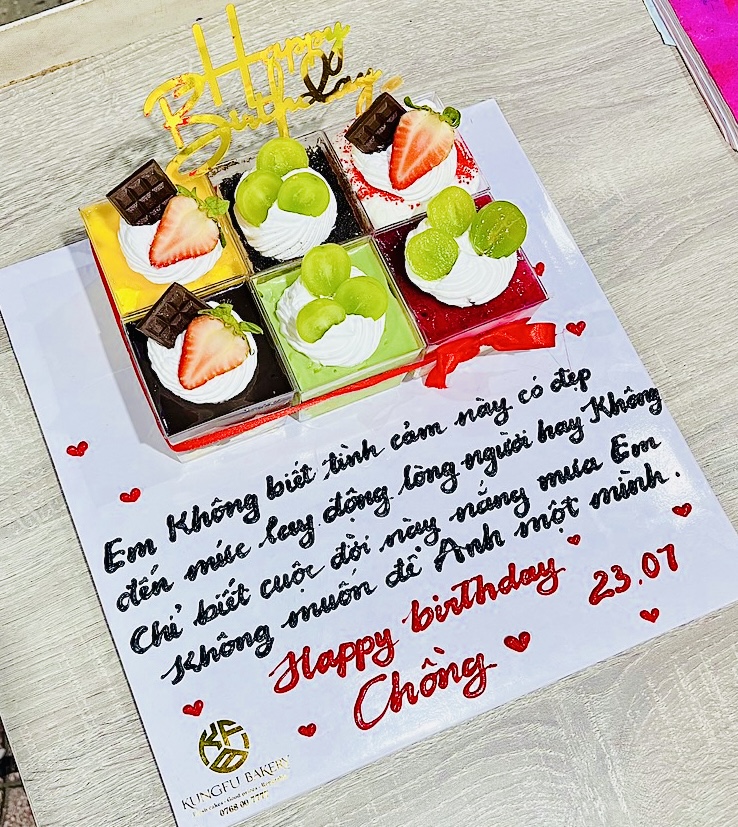 Happy
Birthday
Em Không biết tình cảm này có đẹp
đến mức lay động lòng người hay Không
Chỉ biết cuộc đời này nắng mưa Em
Không muốn để Anh một mình.
Happy birthday 23.07
Chồng
KFB
KUNGFU BAKERY